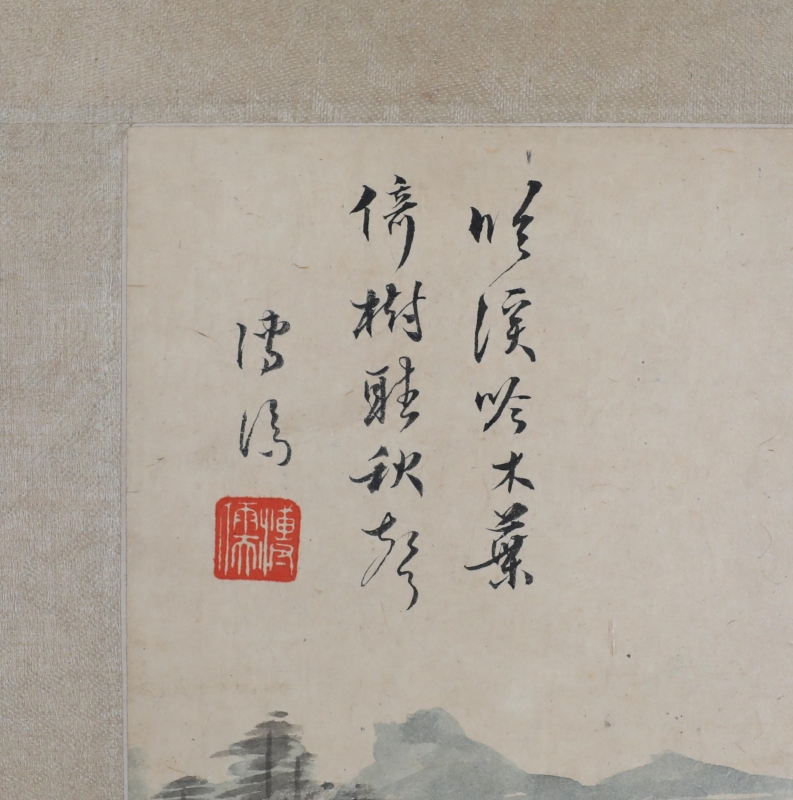 臨溪吟木葉
倚樹聽秋聲
溥儒
溥儒